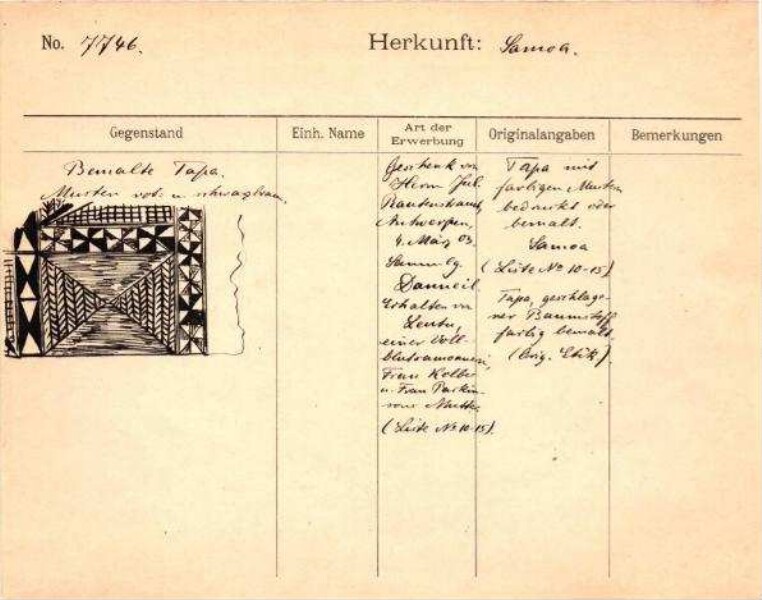 No. 7746.
Herkunft: Samoa.
Gegenstand
Einh. Name
Art der
Erwerbung
Originalangaben
Bemerkungen
Bemalte Tapa.
Muster rot u. schwarzbraun.
Geschenk von
Herrn Jul.
Rautenstrauch,
Antwerpen,
4. März 03.
Sammlg.
Danneil.
Erhalten von
einer Voll-
blutsamoanerin,
Frau Kolbe
u. Frau Parkin-
sons Mutter.
(Liste No 10-15).
Tapa mit
farbigen Muster
bedruckt oder
bemalt.
Samoa
(Liste No 10-15)
Tapa, geschlage-
ner Baumstoff
farbig bemalt.
(Orig. Etik).